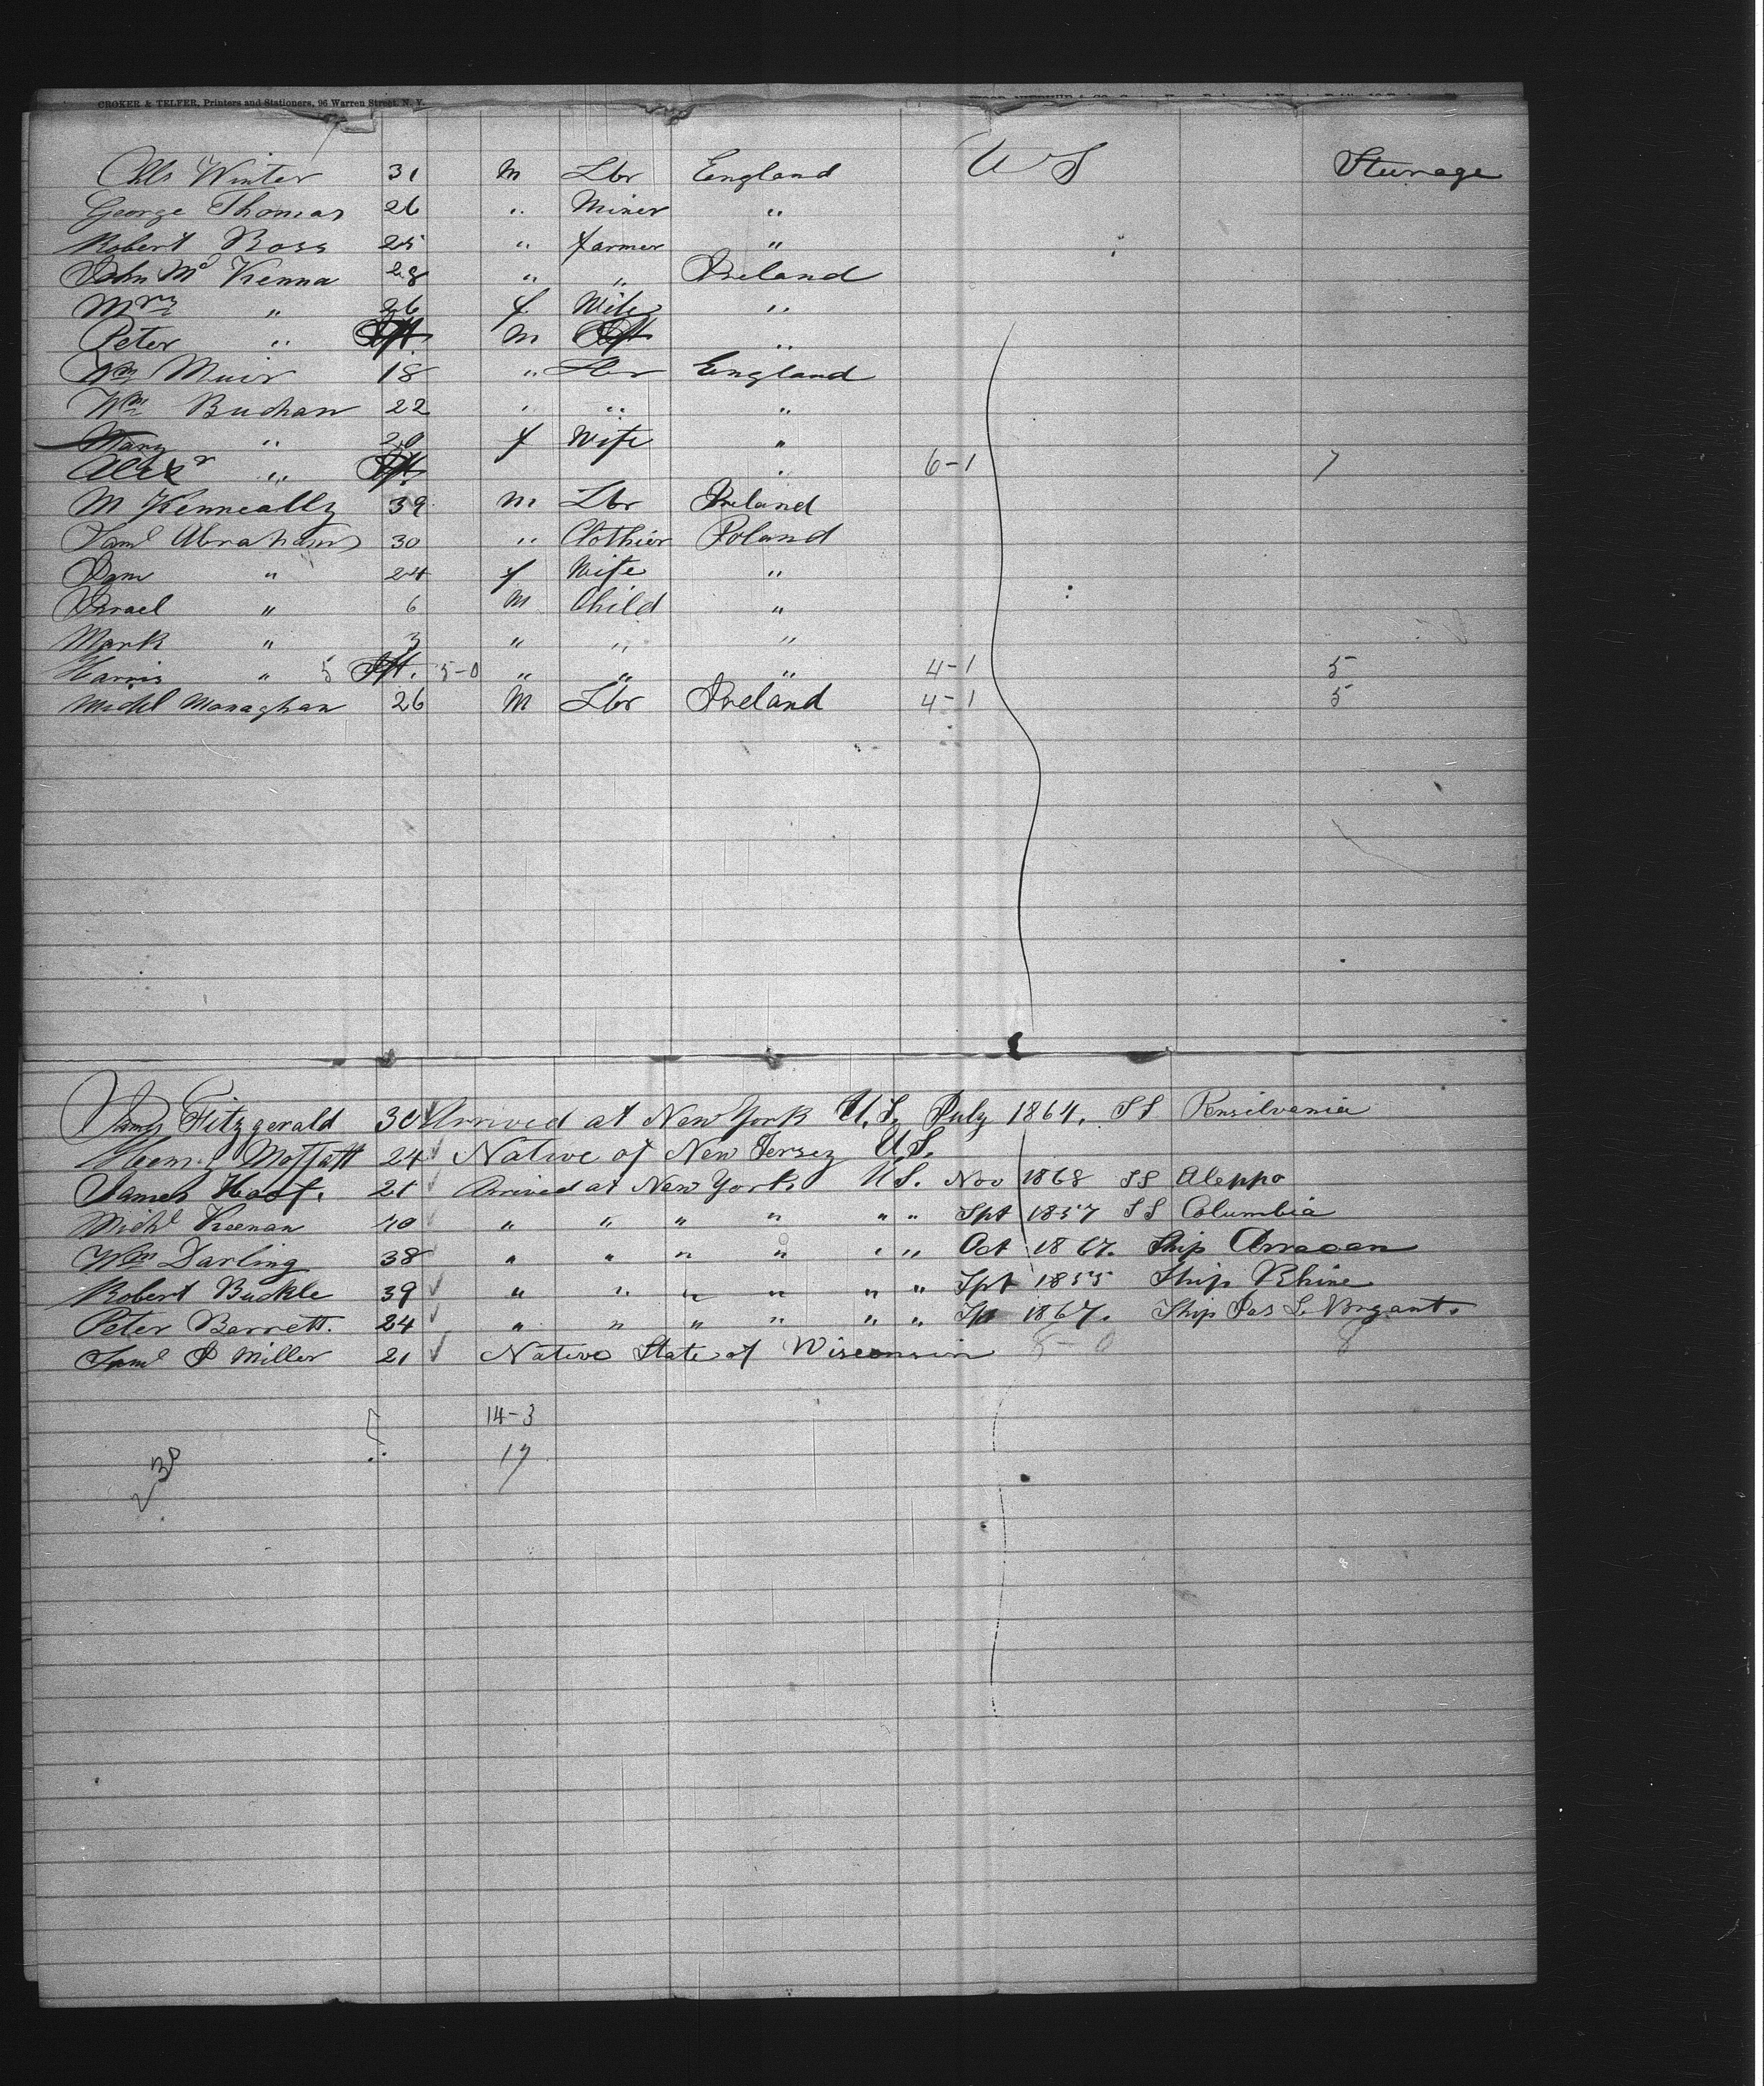 CROKER & TELFER, Printers and Stationers, 96 Warren Street, N. Y.
Chls Winter 31 m Lbr England U S Steerage
George Thomas 26 " Miner "
Robert Ross 25 " farmer "
John Mc Kenna 28 " " Ireland
Mrs " 26 f Wife "
Peter " Inft m Inft "
Wm Muir 18 " Lbr England
Wm Buchan 22 " " "
Mary " 20 f Wife "
Alexr " Inft " 6-1 7
M Kenneally 39 m Lbr Ireland
Saml Abrahams 30 " Clothier Poland
" 24 f Wife "
Israel " 6 m Child "
Mark " 3 " " "
Harris " 5 Inft. 5-0 " " " 4-1 5
Michl Monaghan 26 m Lbr Ireland 4-1 5
James Fitzgerald 30 Arrived at New York U.S. July 1864. SS Pensilvania
Henry Moffatt 24 Native of New Jersey U.S.
James 21 Arrived at New York U.S. Nov 1868 SS Aleppo
Michl Keenan 40 " " " " " " Spt 1857 SS Columbia
Wm Darling 38 " " " " " " Oct 1867. Ship Arracan
Robert Buckle 39 " " " " " " Spt 1855 Ship Rhine
Peter Barrett. 24 " " " " " " 1867. Ship Jas L. Brgant.
Saml P Miller 21 Native State of Wisconsin 8-0 8
14-3
17